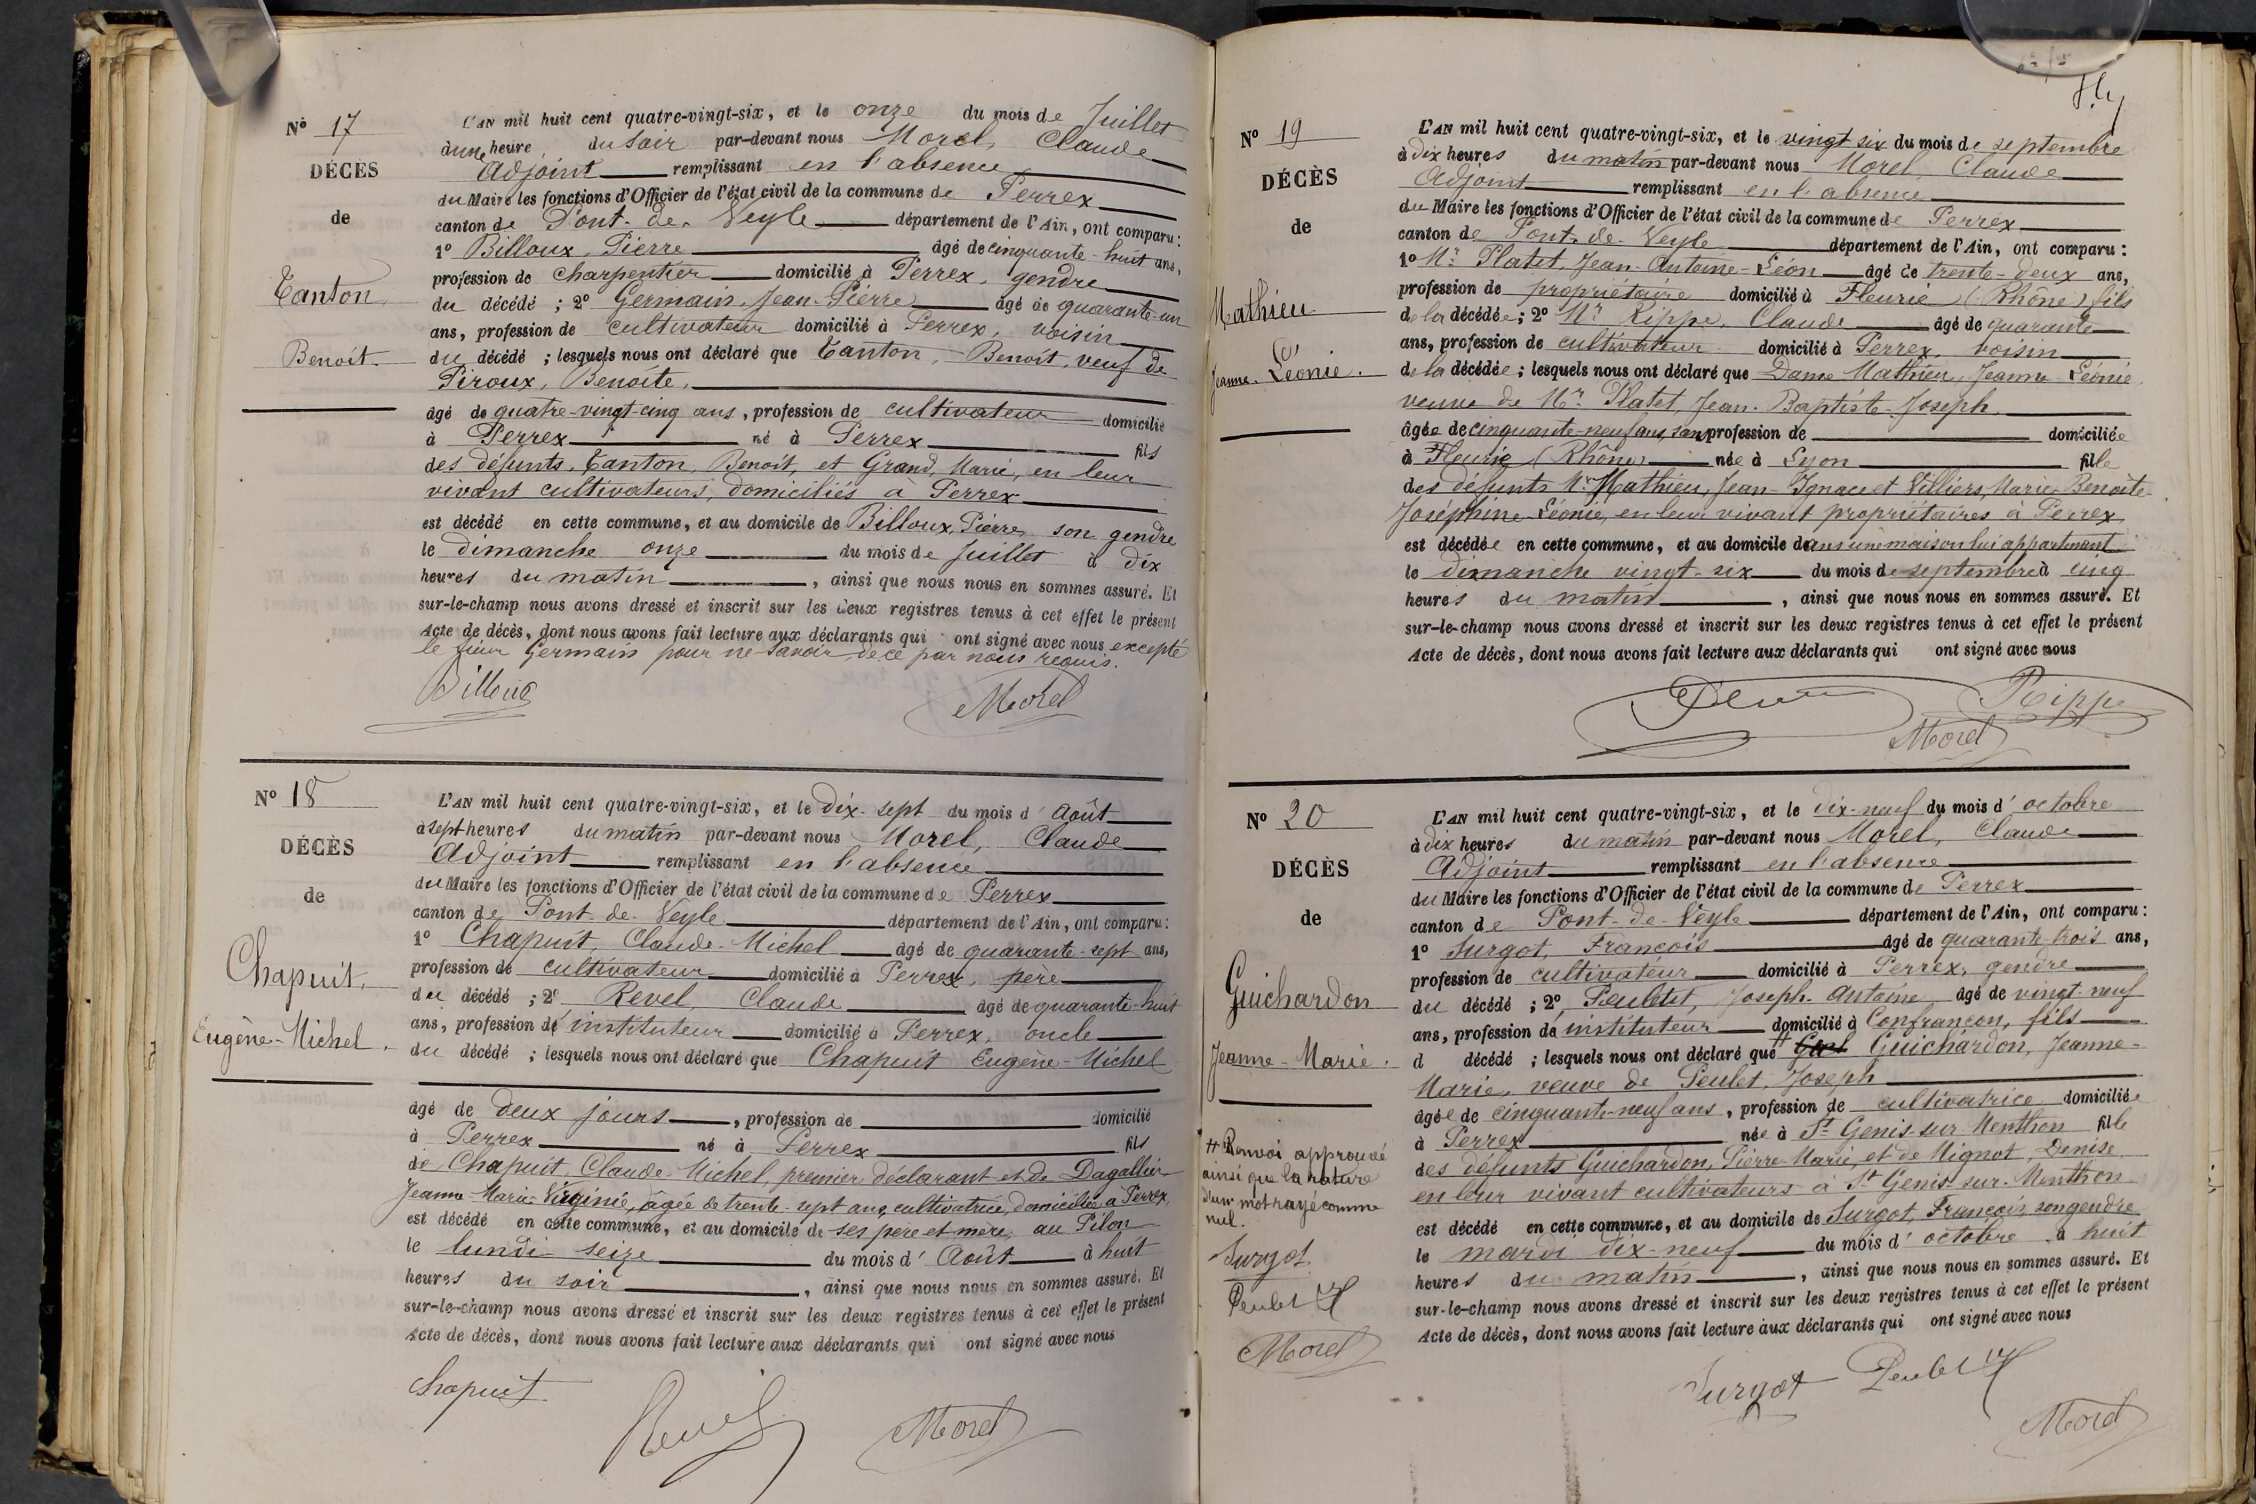 N° 17
DÉCÈS
de
Tanton
Benoît
L'AN mil huit cent quatre-vingt-six, et le onze du mois de Juillet
à une heure du soir par-devant nous Morel, Claude
Adjoint remplissant en l'absence
du Maire les fonctions d'Officier de l'état civil de la commune de Perrex
canton de Pont-de-Veyle département de l'Ain, ont comparu :
1° Billoux, Pierre âgé de cinquante-huit ans,
profession de charpentier domicilié à Perrex, gendre
du décédé ; 2° Germain, Jean-Pierre âgé de quarante-un
ans, profession de cultivateur domicilié à Perrex, voisin
du décédé ; lesquels nous ont déclaré que Tanton, Benoît, veuf de
Piroux, Benoîte,
âgé de quatre-vingt-cinq ans, profession de cultivateur domicilié
à Perrex né à Perrex fils
des défunts Tanton, Benoît, et Grand, Marie, en leur
vivant cultivateurs, domiciliés à Perrex
est décédé en cette commune, et au domicile de Billoux, Pierre, son gendre
le dimanche onze du mois de Juillet à dix
heures du matin, ainsi que nous nous en sommes assuré. Et
sur-le-champ nous avons dressé et inscrit sur les deux registres tenus à cet effet le présent
Acte de décès, dont nous avons fait lecture aux déclarants qui ont signé avec nous excepté
le sieur Germain pour ne savoir de ce par nous requis.
Billoux Morel
N° 18
DÉCÈS
de
Chapuit,
Eugène-Michel.
L'AN mil huit cent quatre-vingt-six, et le dix-sept du mois d'Août
à sept heures du matin par-devant nous Morel, Claude
Adjoint remplissant en l'absence
du Maire les fonctions d'Officier de l'état civil de la commune de Perrex
canton de Pont-de-Veyle département de l'Ain, ont comparu :
1° Chapuit, Claude-Michel âgé de quarante-sept ans,
profession de cultivateur domicilié à Perrex, père
du décédé ; 2° Revel, Claude âgé de quarante-huit
ans, profession d'instituteur domicilié à Perrex, oncle
du décédé ; lesquels nous ont déclaré que Chapuit Eugène-Michel
âgé de deux jours, profession de domicilié
à Perrex né à Perrex fils
de Chapuit, Claude-Michel, premier déclarant et de Dagallier
Jeanne-Marie-Virginie, âgée de trente-sept ans, cultivatrice, domiciliée à Perrex,
est décédé en cette commune, et au domicile de ses père et mère, au Pilon
le lundi seize du mois d'Août à huit
heures du soir, ainsi que nous nous en sommes assuré. Et
sur-le-champ nous avons dressé et inscrit sur les deux registres tenus à cet effet le présent
Acte de décès, dont nous avons fait lecture aux déclarants qui ont signé avec nous
Chapuit Revel Morel
N° 19
DÉCÈS
de
Mathieu
Jeanne-Léonie.
L'AN mil huit cent quatre-vingt-six, et le vingt six du mois de septembre
à dix heures du matin par-devant nous Morel, Claude
Adjoint remplissant en l'absence
du Maire les fonctions d'Officier de l'état civil de la commune de Perrex
canton de Pont-de-Veyle département de l'Ain, ont comparu :
1° Mr Platet, Jean-Antoine-Léon âgé de trente-deux ans,
profession de propriétaire domicilié à Fleurie (Rhône) fils
de la décédée ; 2° Mr Rippe, Claude âgé de quarante
ans, profession de cultivateur domicilié à Perrex, voisin
de la décédée ; lesquels nous ont déclaré que Dame Mathieu, Jeanne-Léonie
veuve de Mr Platet, Jean-Baptiste-Joseph
âgée de cinquante-neuf ans, sans profession de domiciliée
à Fleurie (Rhône) née à Lyon fille
des défunts Mr Mathieu, Jean-Ignace et Villiers, Marie Benoîte-
Joséphine-Léonie, en leur vivant propriétaires à Perrex
est décédée en cette commune, et au domicile dans une maison lui appartenant
le dimanche vingt-six du mois de septembre à cinq
heures du matin, ainsi que nous nous en sommes assuré. Et
sur-le-champ nous avons dressé et inscrit sur les deux registres tenus à cet effet le présent
Acte de décès, dont nous avons fait lecture aux déclarants qui ont signé avec nous
Rippe
Morel
N° 20
DÉCÈS
de
Guichardon
Jeanne-Marie.
L'AN mil huit cent quatre-vingt-six, et le dix-neuf du mois d'octobre
à dix heures du matin par-devant nous Morel, Claude
Adjoint remplissant en l'absence
du Maire les fonctions d'Officier de l'état civil de la commune de Perrex
canton de Pont-de-Veyle département de l'Ain, ont comparu :
1° Surgot, François âgé de quarante-trois ans,
profession de cultivateur domicilié à Perrex, gendre
du décédé ; 2° Peulet, Joseph-Antoine âgé de vingt-neuf
ans, profession de instituteur domicilié à Confrançon, fils
d décédé ; lesquels nous ont déclaré que Guichardon, Jeanne-
Marie, veuve de Peulet, Joseph
âgée de cinquante-neuf ans, profession de cultivatrice domiciliée
à Perrex née à St Genis-sur-Menthon fille
des défunts Guichardon, Pierre-Marie, et de Mignot, Denise
en leur vivant cultivateurs à St Genis-sur-Menthon
est décédé en cette commune, et au domicile de Surgot, François, son gendre
le mardi dix-neuf du mois d'octobre à huit
heures du matin, ainsi que nous nous en sommes assuré. Et
sur-le-champ nous avons dressé et inscrit sur les deux registres tenus à cet effet le présent
Acte de décès, dont nous avons fait lecture aux déclarants qui ont signé avec nous
Surgot Peulet
Morel
Renvoi approuvé
ainsi que la rature
d'un mot rayé comme
nul.
Surgot
Peulet
Morel